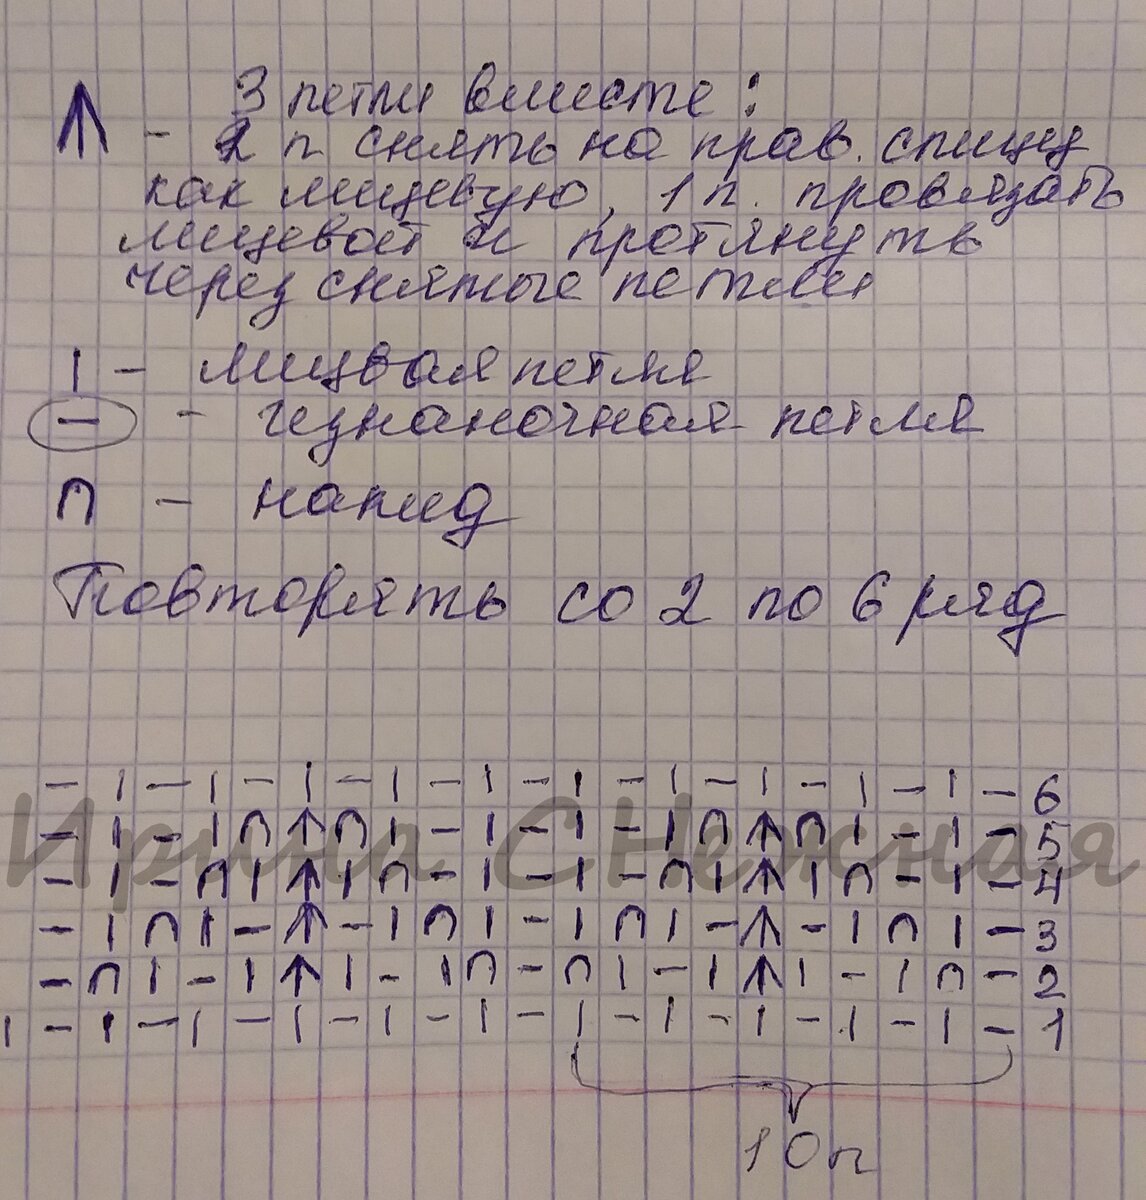 3 петли вместе:
↑ - 2 п снять на прав. спицу
как лицевую, 1 п. провязать
лицевой и протянуть
через снятые петли
| - лицвая петля
— - изнаночная петля
∩ - накид
Повторять со 2 по 6 ряд
— | — | — | — | — | — | — | — | — | — | — 6
— | — | ∩ ↑ ∩ | — | — | — | ∩ ↑ ∩ | — | — 5
— | — ∩ | ↑ | ∩ — | — | — ∩ | ↑ | ∩ — | — 4
— | ∩ | — ↑ — | ∩ | — | ∩ | — ↑ — | ∩ | — 3
— ∩ | — | ↑ | — | ∩ — ∩ | — | ↑ | — | ∩ — 2
| — | — | — | — | — | — | — | — | — | — | — 1
10п
Ирина СНежная